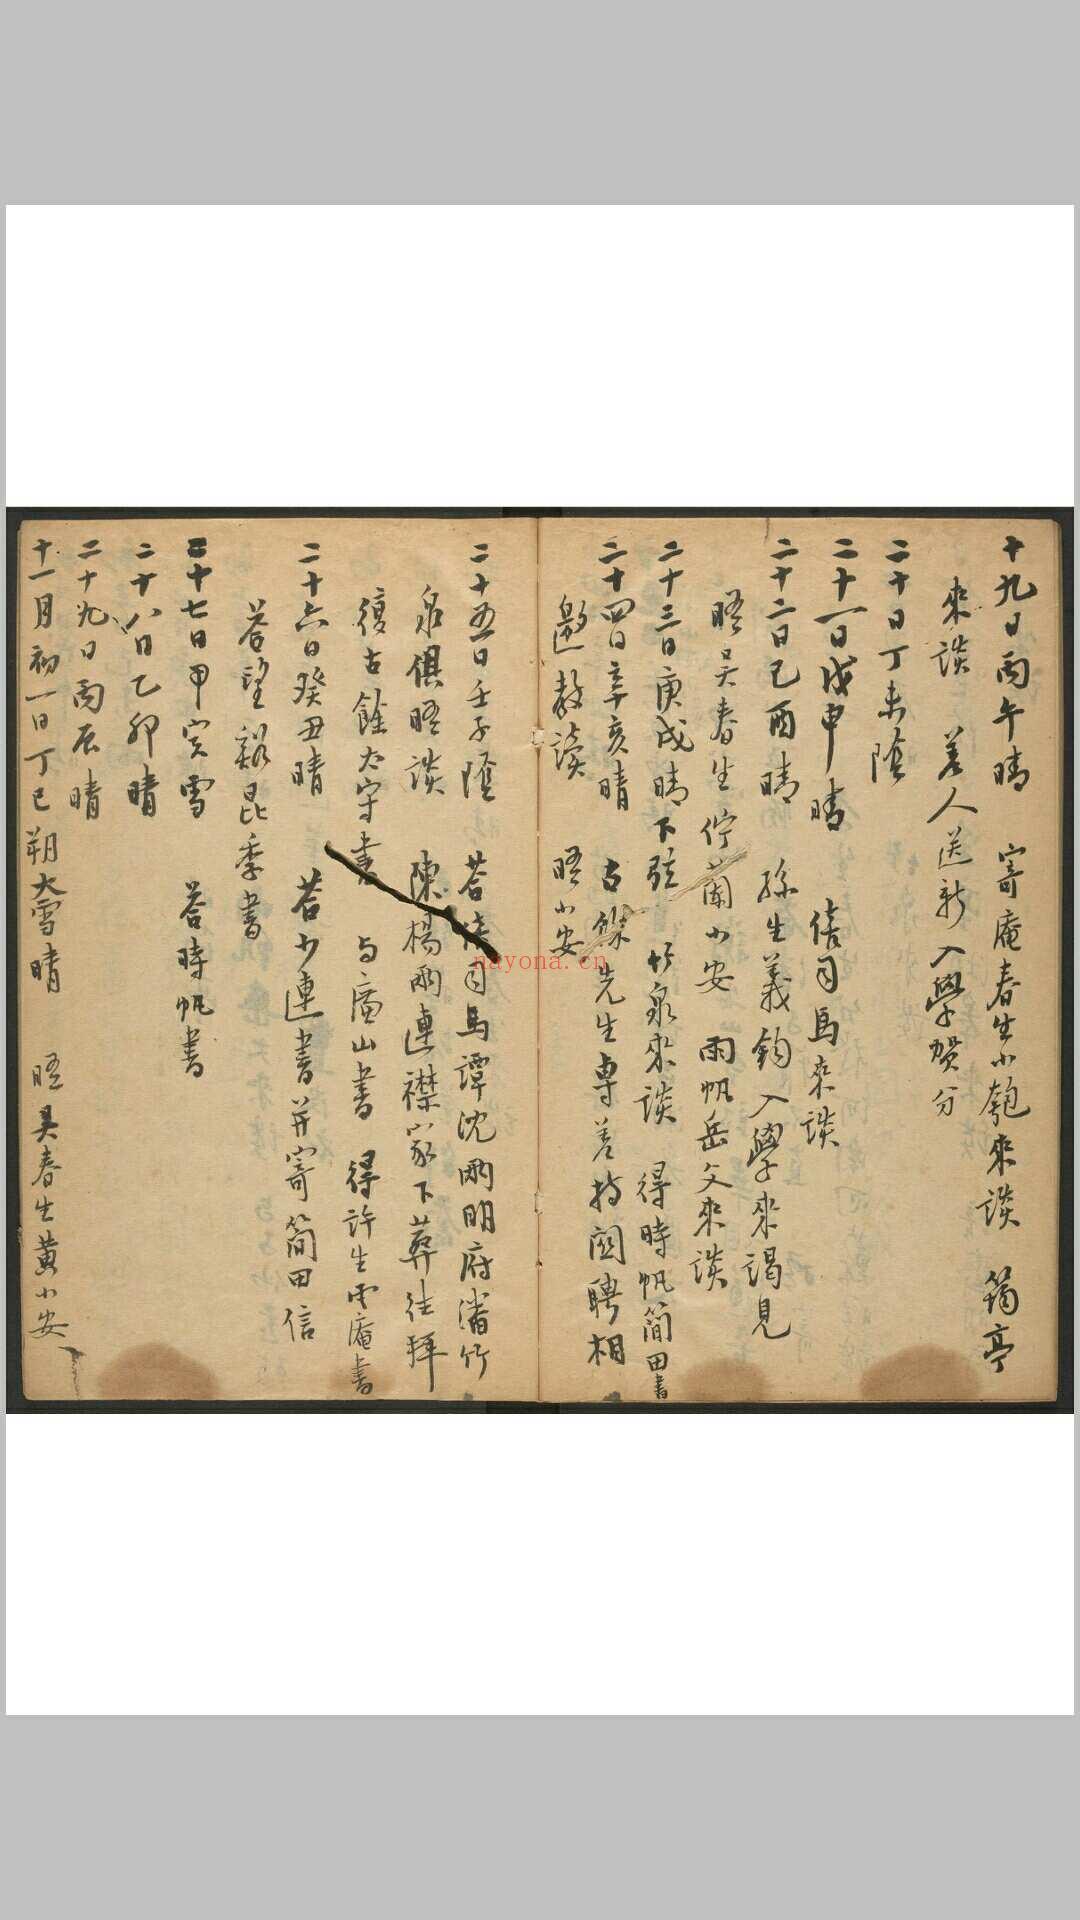 十九日丙午晴　寄庵春生小匏來談　筠亭
來談　差人送新入學賀分
二十日丁未陰
二十一日戊申晴　倍司馬來談
二十二日己酉晴　孫生義鈞入學來謁見
晤吳春生佇蘭小安　雨帆岳文來談
二十三日庚戌晴下弦　竹泉來談　得時帆簡田書
二十四日辛亥晴　古餘先生專差持關聘相
邀教讀　晤小安
二十五日壬子陰　答倍司馬譚沈兩明府潘竹
泉俱晤談　陳楊兩連襟家下葬往拜
復古餘太守書　與廉山書　得許生雲庵書
二十六日癸丑晴　答少連書并寄簡田信
答望谿昆季書
二十七日甲寅雪　答時帆書
二十八日乙卯晴
二十九日丙辰晴
十一月初一日丁巳朔大雪晴　晤吳春生黃小安
nayona.cn